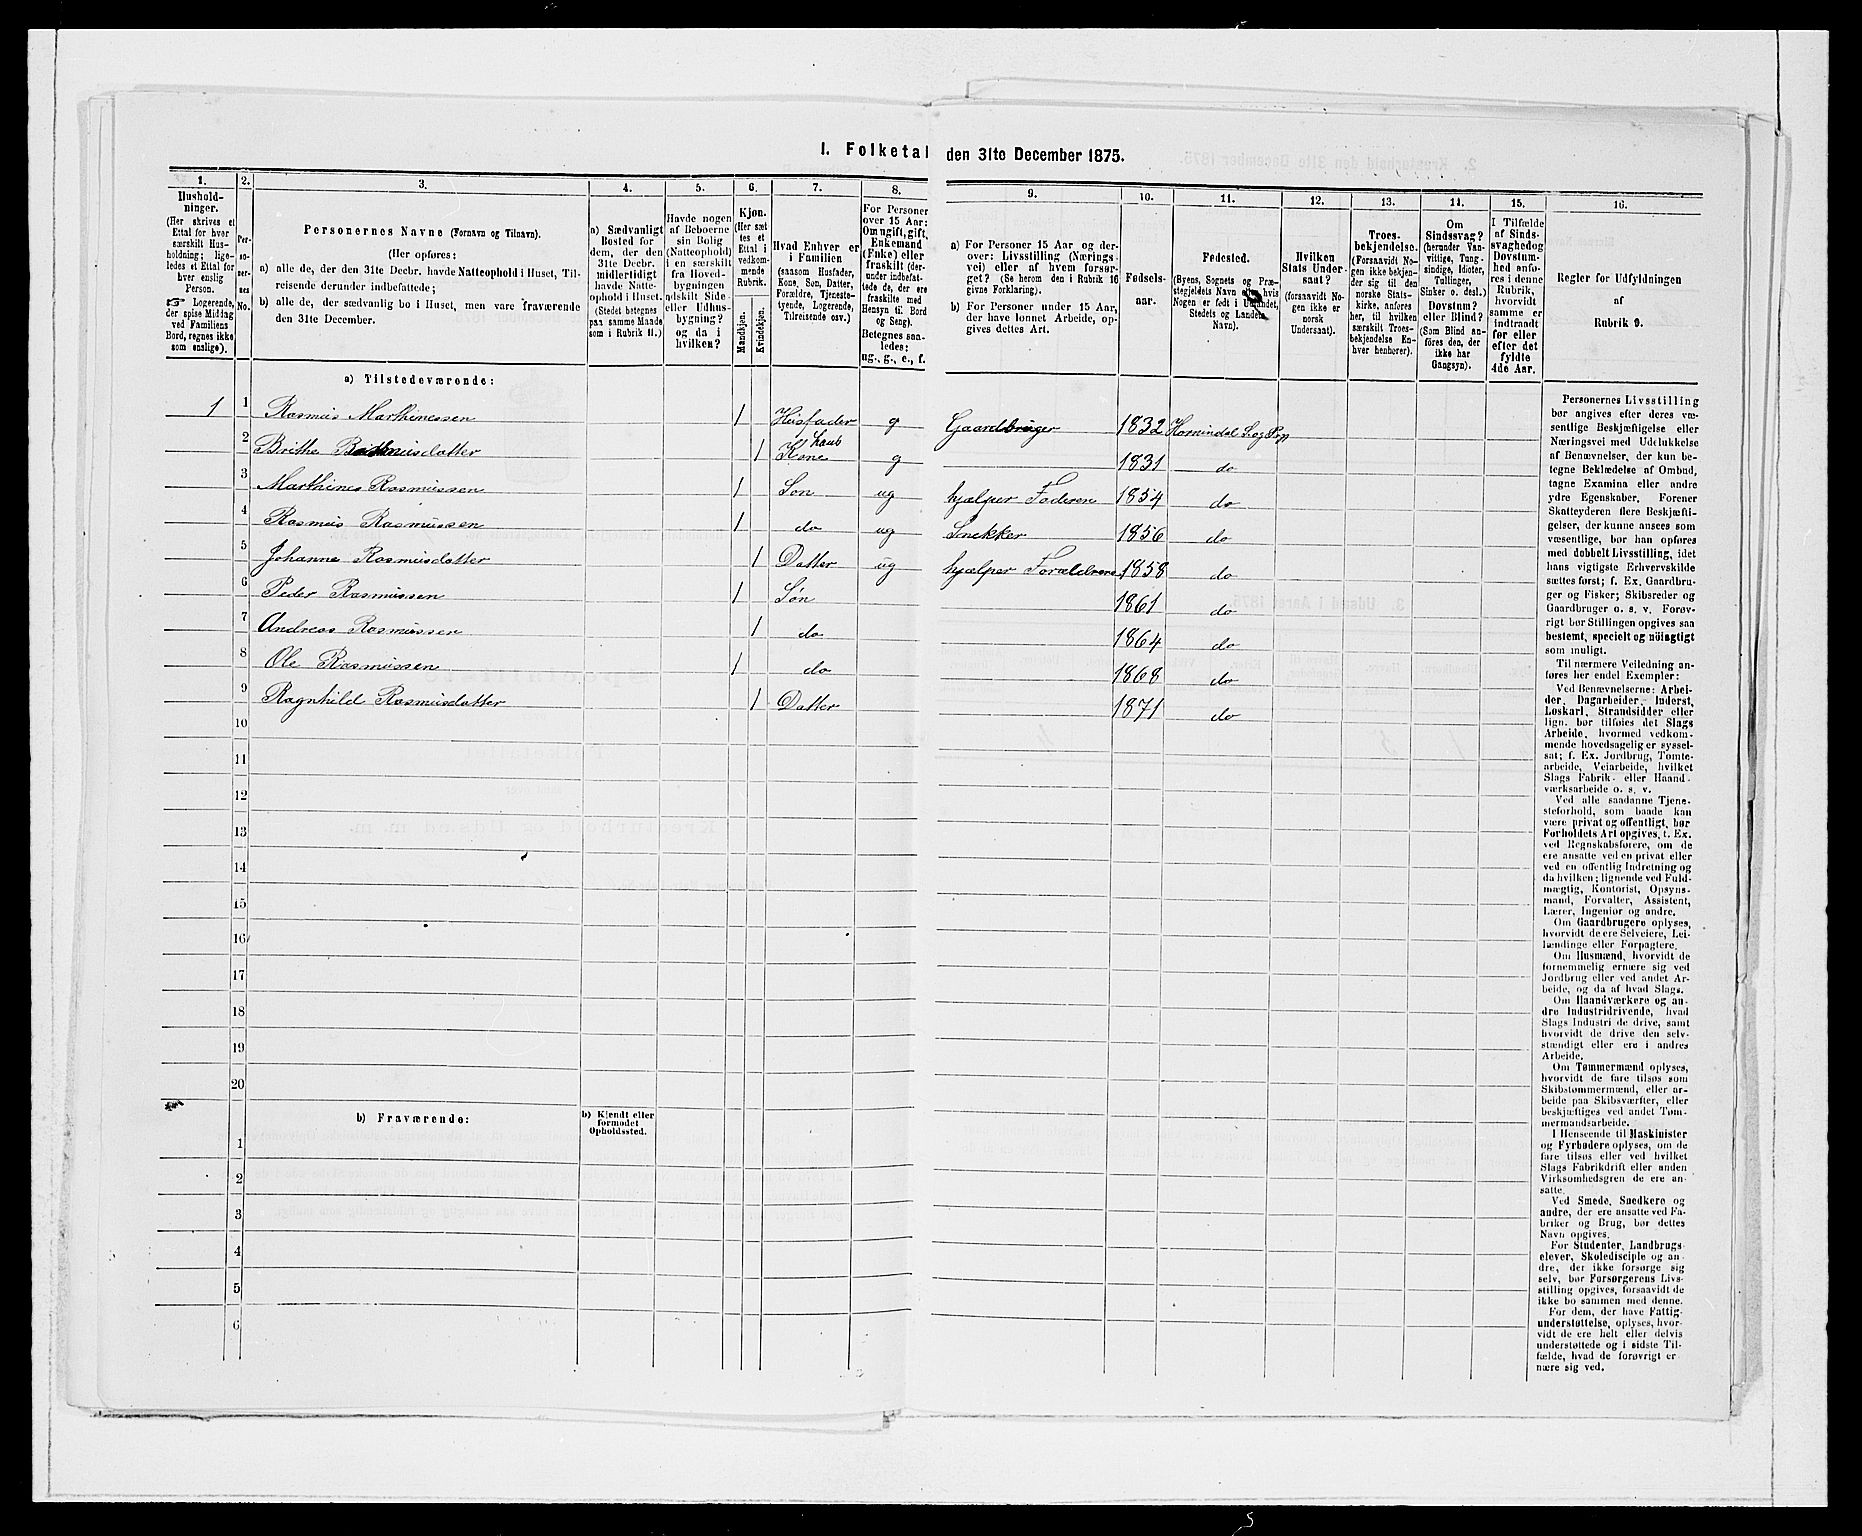 I. Folketal den 31te December 1875.
1.
Hushold-
ninger.
(Her skrives et
Ettal for hver
særskilt Hus-
holdning; lige-
ledes et Ettal for
hver enslig
Person.
☞ Logerende,
der spise Middag
ved Familiens
Bord, regnes ikke
som enslige).
2.
Per-
so-
ner-
nes
No.
3.
Personernes Navne (Fornavn og Tilnavn).
(Her opføres:
a) alle de, der den 31te Decbr. havde Natteophold i Huset, Til-
reisende derunder indbefattede;
b) alle de, der sædvanlig bo i Huset, men vare fraværende
den 31te December.
4.
a) Sædvanligt
Bosted for
dem, der den
31te Decbr.
midlertidigt
havde Natte-
ophold i Huset.
(Stedet betegnes
paa samme Maade
som i Rubrik 11.)
5.
Havde nogen
af Beboerne
sin Bolig
(Natteophold)
i en særskilt
fra Hoved-
bygningen
adskilt Side-
eller Udhus-
bygning?
og da i
hvilken?
6.
Kjøn.
(Her sæt
tes et
Ettal i
vedkom-
mende
Rubrik.
Mandkjøn.
Kvindekjøn.
7.
Hvad Enhver er
i Familien
(saasom Husfader,
Kone, Søn, Datter,
Forældre, Tjeneste-
tyende, Logerende,
Tilreisende osv.)
8.
For Personer
over 15 Aar:
Om ugift, gift,
Enkemand
(Enke) eller
fraskilt (der-
under indbefat-
tede de, der ere
fraskilte med
Hensyn til Bord
og Seng).
Betegnes saa-
ledes:
ug., g., e., f.
9.
a) For Personer 15 Aar og der-
over: Livsstilling (Nærings-
vei) eller af hvem forsør-
get? (Se herom den i Rubrik 16
givne Forklaring).
b) For Personer under 15 Aar,
der have lønnet Arbeide, op-
gives dettes Art.
10.
Fødsels-
aar.
11.
Fødested.
(Byens, Sognets og Præ-
stegjeldets Navn eller, hvis
Nogen er født i Udlandet,
Stedets og Landets
Navn).
12.
Hvilken
Stats Under-
saat?
(forsaavidt No-
gen ikke er
norsk
Undersaat).
13.
Troes-
bekjendelse.
(Forsaavidt No-
gen ikke bekjen-
der sig til den
norske Stats-
kirke, anføres
her, til hvilken
særskilt Troes-
bekjendelse En-
hver henhører).
14.
Om
Sindssvag?
(herunder Van-
vittige, Tung-
sindige, Idioter,
Tullinger,
Sinker o. desl.)
Døvstum?
eller Blind?
(Som Blind an-
føres den, der
ikke har
Gangsyn).
15.
I Tilfælde
af Sinds-
svaghed og
Døvstum-
hed anfø-
res i denne
Rubrik,
hvorvidt
samme er
indtraadt
før eller
efter det
fyldte
4de Aar.
16.
Regler for Udfyldningen
af
Rubrik 9.
a) Tilstedeværende:
1 1 Rasmus Marthinessen 1 Husfader g Gaardbruger 1832 Hornindal S og Pgj
2 Brithe Rasmusdatter 1 Kone g 1831 do
3 Marthines Rasmussen 1 Søn ug hjælper Faderen 1854 do
4 Rasmus Rasmussen 1 do ug Snekker 1856 do
5 Johanne Rasmusdatter 1 Datter ug hjælper Forældrene 1858 do
6 Peder Rasmussen 1 Søn 1861 do
7 Andreas Rasmussen 1 do 1864 do
8 Ole Rasmussen 1 do 1868 do
9 Ragnhild Rasmusdatter 1 Datter 1871 do
10
11
12
13
14
15
16
17
18
19
20
b) Fraværende:
b) Kjendt eller
formodet
Opholdssted.
1
2
3
4
5
6
Personernes Livsstilling
bør angives efter deres væ-
sentlige Beskjæftigelse eller
Næringsvei med Udelukkelse
af Benævnelser, der kun be-
tegne Beklædelse af Ombud,
tagne Examina eller andre
ydre Egenskaber. Forener
Skatteyderen flere Beskjæfti-
gelser, der kunne ansees som
væsentlige, bør han opføres
med dobbelt Livsstilling, idet
hans vigtigste Erhvervskilde
sættes først; f. Ex. Gaardbru-
ger og Fisker; Skibsreder og
Gaardbruger o. s. v. Forøv-
rigt bør Stillingen opgives saa
bestemt, specielt og nöiagtigt
som muligt.
Til nærmere Veiledning an-
føres her endel Exempler:
Ved Benævnelserne: Arbei-
der, Dagarbeider, Inderst,
Løskarl, Strandsidder eller
lign. bør tilføies det Slags
Arbeide, hvormed vedkom-
mende hovedsagelig er syssel-
sat; f. Ex. Jordbrug, Tomte-
arbeide, Veiarbeide, hvilket
Slags Fabrik- eller Haand-
værksarbeide o. s. v.
Ved alle saadanne Tjene-
steforhold, som baade kan
være privat og offentligt, bør
Forholdets Art opgives, t. Ex.
ved Regnskabsførere, om de
ere ansatte ved en privat eller
ved en offentlig Indretning og
da hvilken; lignende ved Fuld-
mægtig, Kontorist, Opsyns-
mand, Forvalter, Assistent,
Lærer, Ingeniør og andre.
Om Gaardbrugere oplyses,
hvorvidt de ere Selveiere, Lei-
lændinge eller Forpagtere.
Om Husmænd, hvorvidt de
fornemmelig ernære sig ved
Jordbrug eller ved andet Ar-
beide, og da af hvad Slags.
Om Haandværkere og an-
dre Industridrivende, hvad
Slags Industri de drive, samt
hvorvidt de drive den selv-
stændigt eller ere i andres
Arbeide.
Om Tømmermænd oplyses,
hvorvidt de fare tilsøs som
Skibstømmermænd, eller ar-
beide paa Skibsværfter, eller
beskjæftiges ved andet Tøm-
mermandsarbeide.
I Henseende til Maskinister
og Fyrbødere oplyses, om de
fare tilsøs eller ved hvilket
Slags Fabrikdrift eller anden
Virksomhedsgren de ere an-
satte.
Ved Smede, Snedkere og
andre, der ere ansatte ved Fa-
briker og Brug, bør dettes
Navn opgives.
For Studenter, Landbrugs-
elever, Skoledisciple og an-
dre, der ikke forsørge sig
selv, bør Forsørgerens Livs-
stilling opgives, forsaavidt de
ikke bo sammen med denne.
For dem, der have Fattig-
understøttelse, oplyses, hvor-
vidt de ere helt eller delvis
understøttede og i sidste Til-
fælde, hvad de forøvrigt er
nære sig ved.